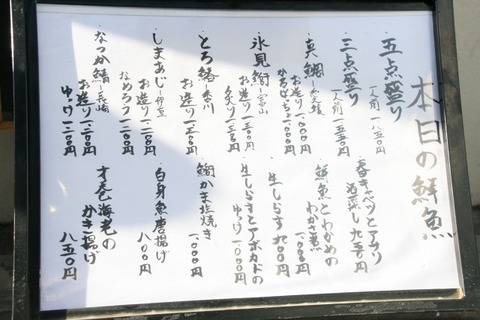 本日の鮮魚
五点盛り
一人前 一八五〇
三点盛り
一人前 一三五〇
真鯛
お造り 一、〇〇〇円
氷見鰤 富山
お造り 一三五〇円
とろ鰆 香川
お造り 一三五〇円
しまあじ 伊豆
お造り 一三〇〇円
なめろう 一二〇〇円
なつか鯖 長崎
お造り 一二〇〇円
ゆっけ 一二〇〇円
春キャベツとアサリ
酒蒸し 九五〇円
鮮魚とわかめの
わかさ煮 一、〇〇〇円
生しらす 九〇〇円
生しらすとアボカドの
ゆっけ 一、〇〇〇円
鰤かま塩焼き
一、〇〇〇円
白身魚唐揚げ
八〇〇円
才巻海老の
かき揚げ
八五〇円